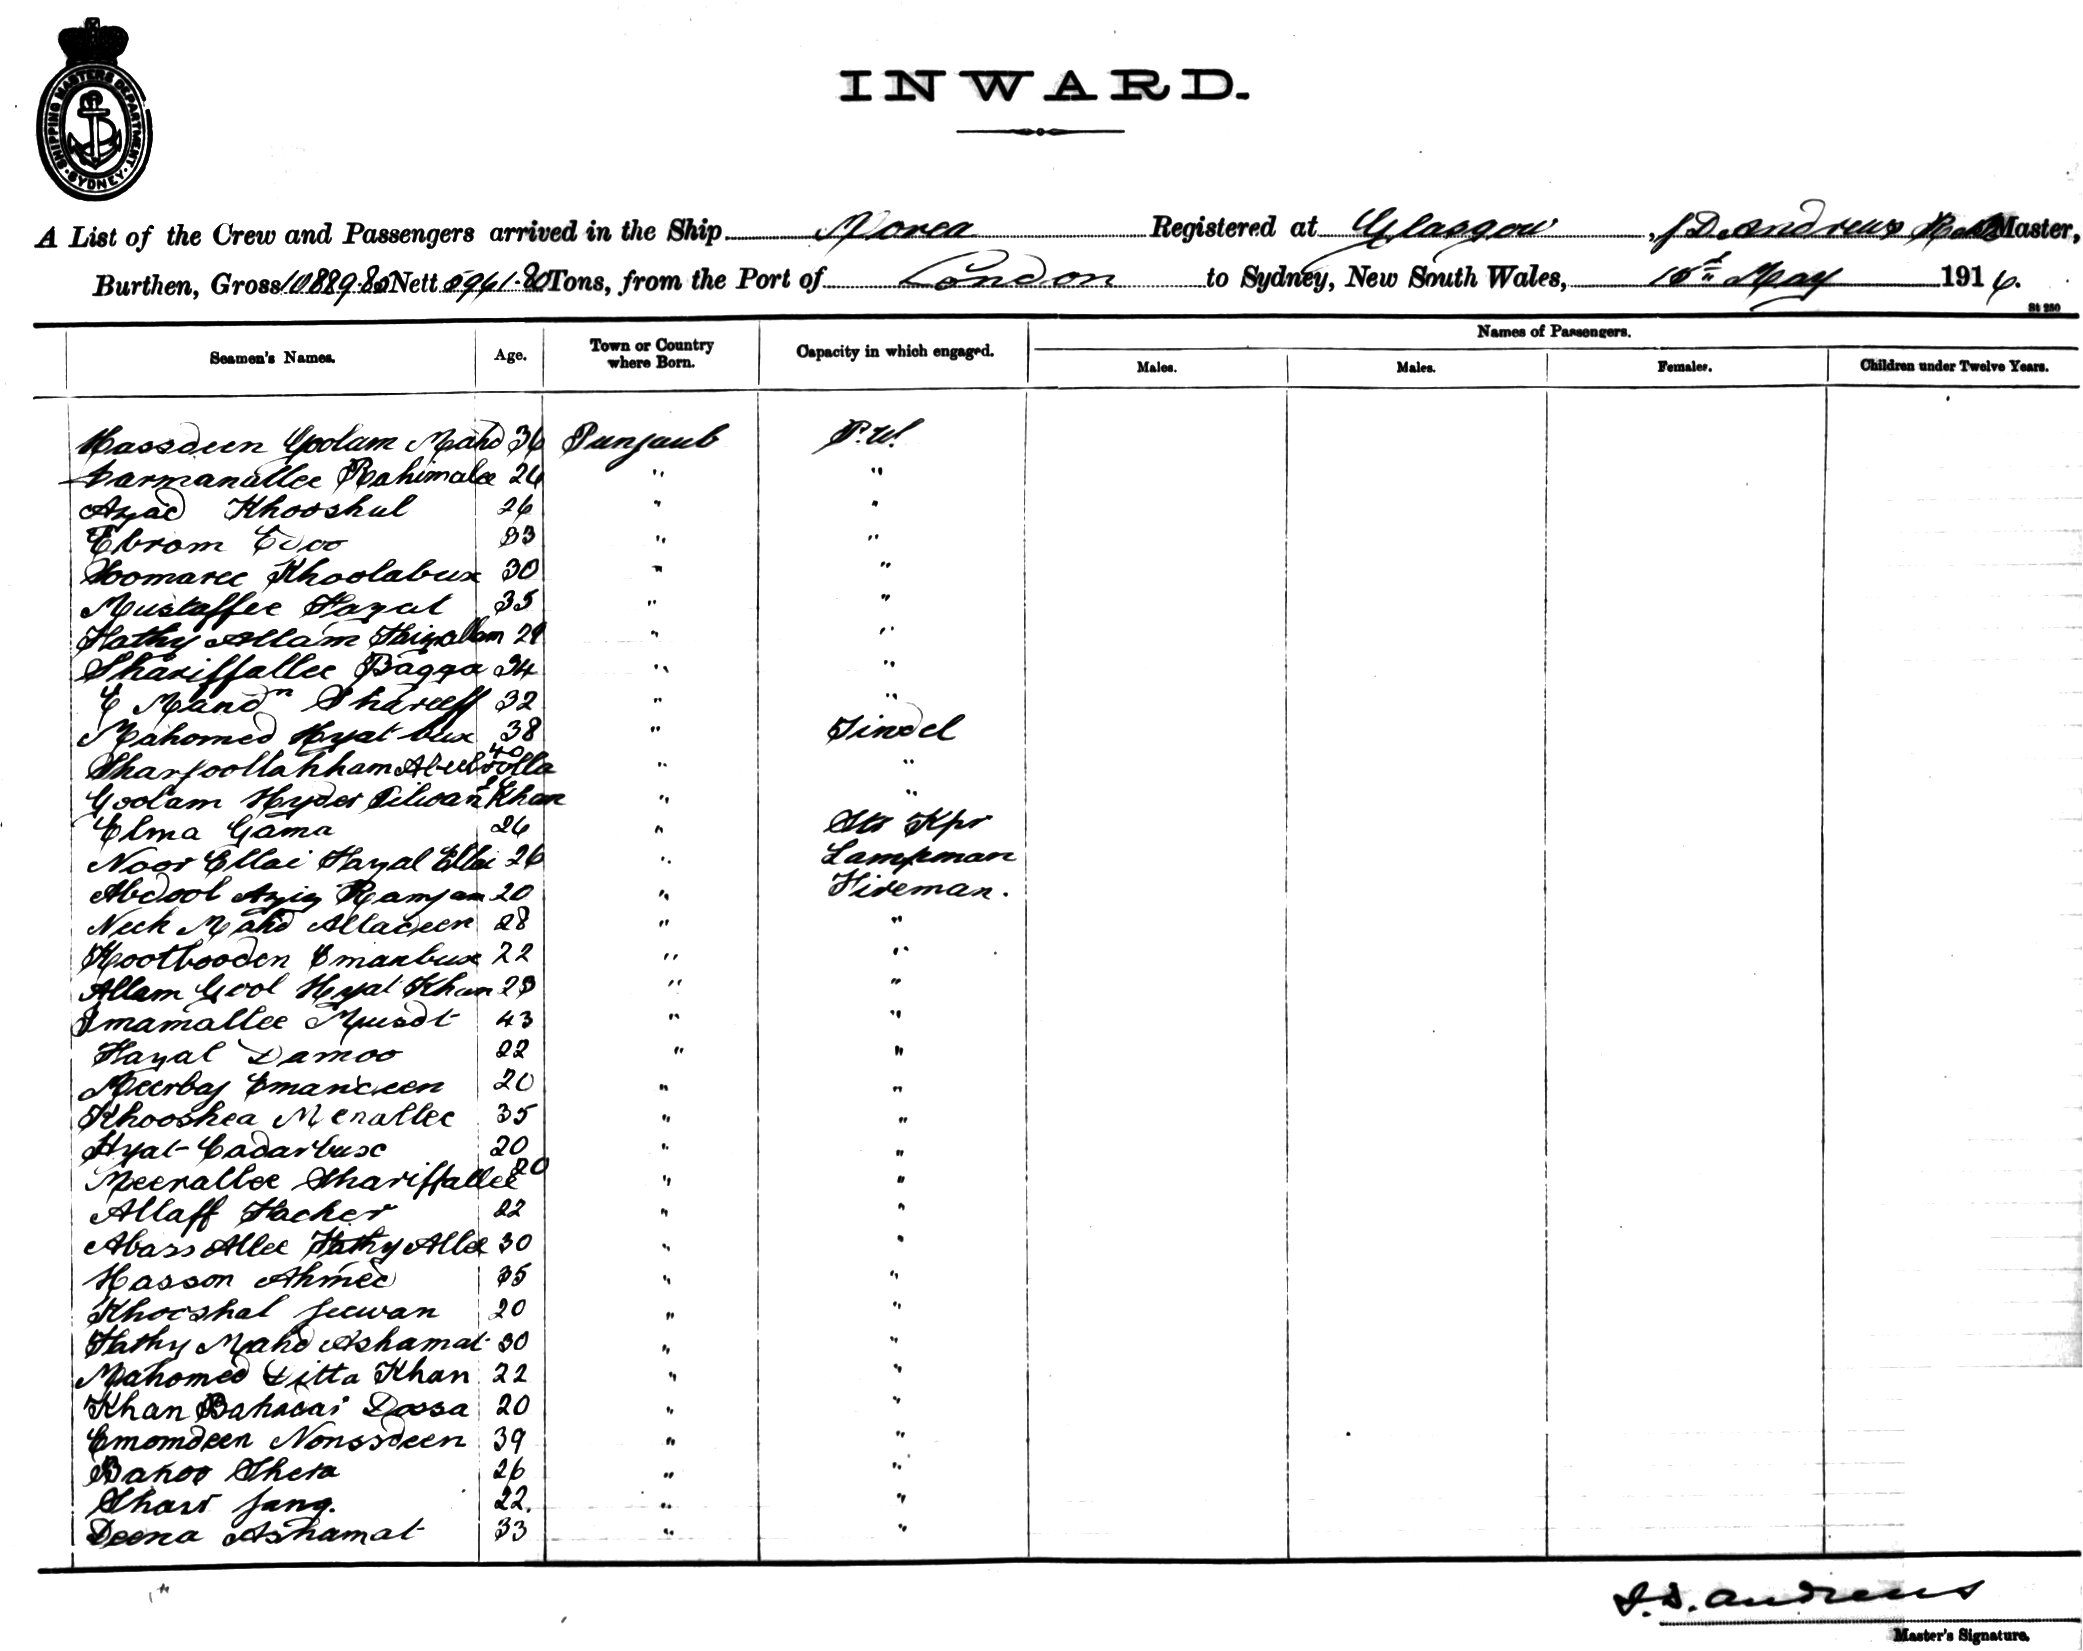 SHIPPING MASTERS DEPARTMENT · SYDNEY ·
INWARD.
A List of the Crew and Passengers arrived in the Ship Morea Registered at Glasgow, J D Andrews Master,
Burthen, Gross 10889.80 Nett 5961.80 Tons, from the Port of London to Sydney, New South Wales, May 1916.
St 250
Seamen's Names. Age. Town or Country where Born. Capacity in which engaged. Names of Passengers.
Males. Males. Females. Children under Twelve Years.
Hassdeen Goolam Mahd 36 Punjaub P.W.
Karmanallee Rahimalee 26 " "
Azad Khooshul 26 " "
Ebrom Edoo 33 " "
Khoolabux 30 " "
Mustaffee Fazal 35 " "
Fathy Allam Faizallam 29 " "
Shariffallee Bagga 34 " "
E Mahd Shareeff 32 " "
Mahomed Hyat bux 38 " Tindel
40 " "
Goolam Hyder Khan " "
Elma Gama 26 " Str Kpr
Noor Ellai Fazal Ellai 26 " Lampman
Abdool Aziz Ramjan 20 " Fireman.
Neek Mahd Alladeen 28 " "
Kootbooden Emanbux 22 " "
Allam Gool Hyat Khan 23 " "
Imamallee Musdt 43 " "
Fazal Damoo 22 " "
Meerbaj Emandeen 20 " "
Khooshea Merallee 35 " "
Hyat Cadarbux 20 " "
Meerallee Shariffallee 20 " "
Allaff Facker 22 " "
Abass Allee Fathy Allee 30 " "
Hasson Ahmed 35 " "
Khooshal Jeewan 20 " "
Fathy Mahd Ashamat 30 " "
Mahomed Ditta Khan 22 " "
Khan Bahadar Dossa 20 " "
Emomdeen Nonssdeen 39 " "
Bahoo Shera 26 " "
Jang. 22. " "
Deena Ashamat 33 " "
J. D. Andrews
Master's Signature.